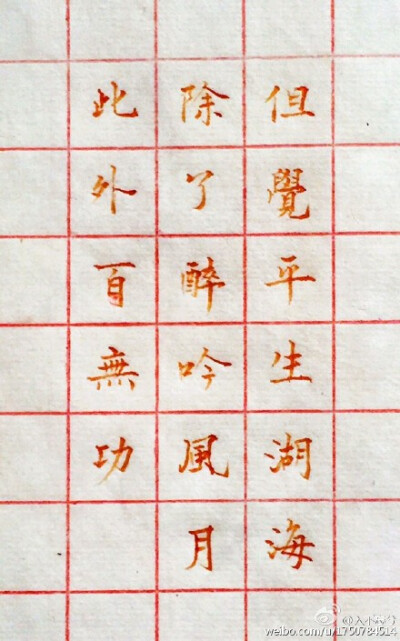 但覺平生湖海
除了醉吟風月
此外百無功
weibo.com/u/1750784514